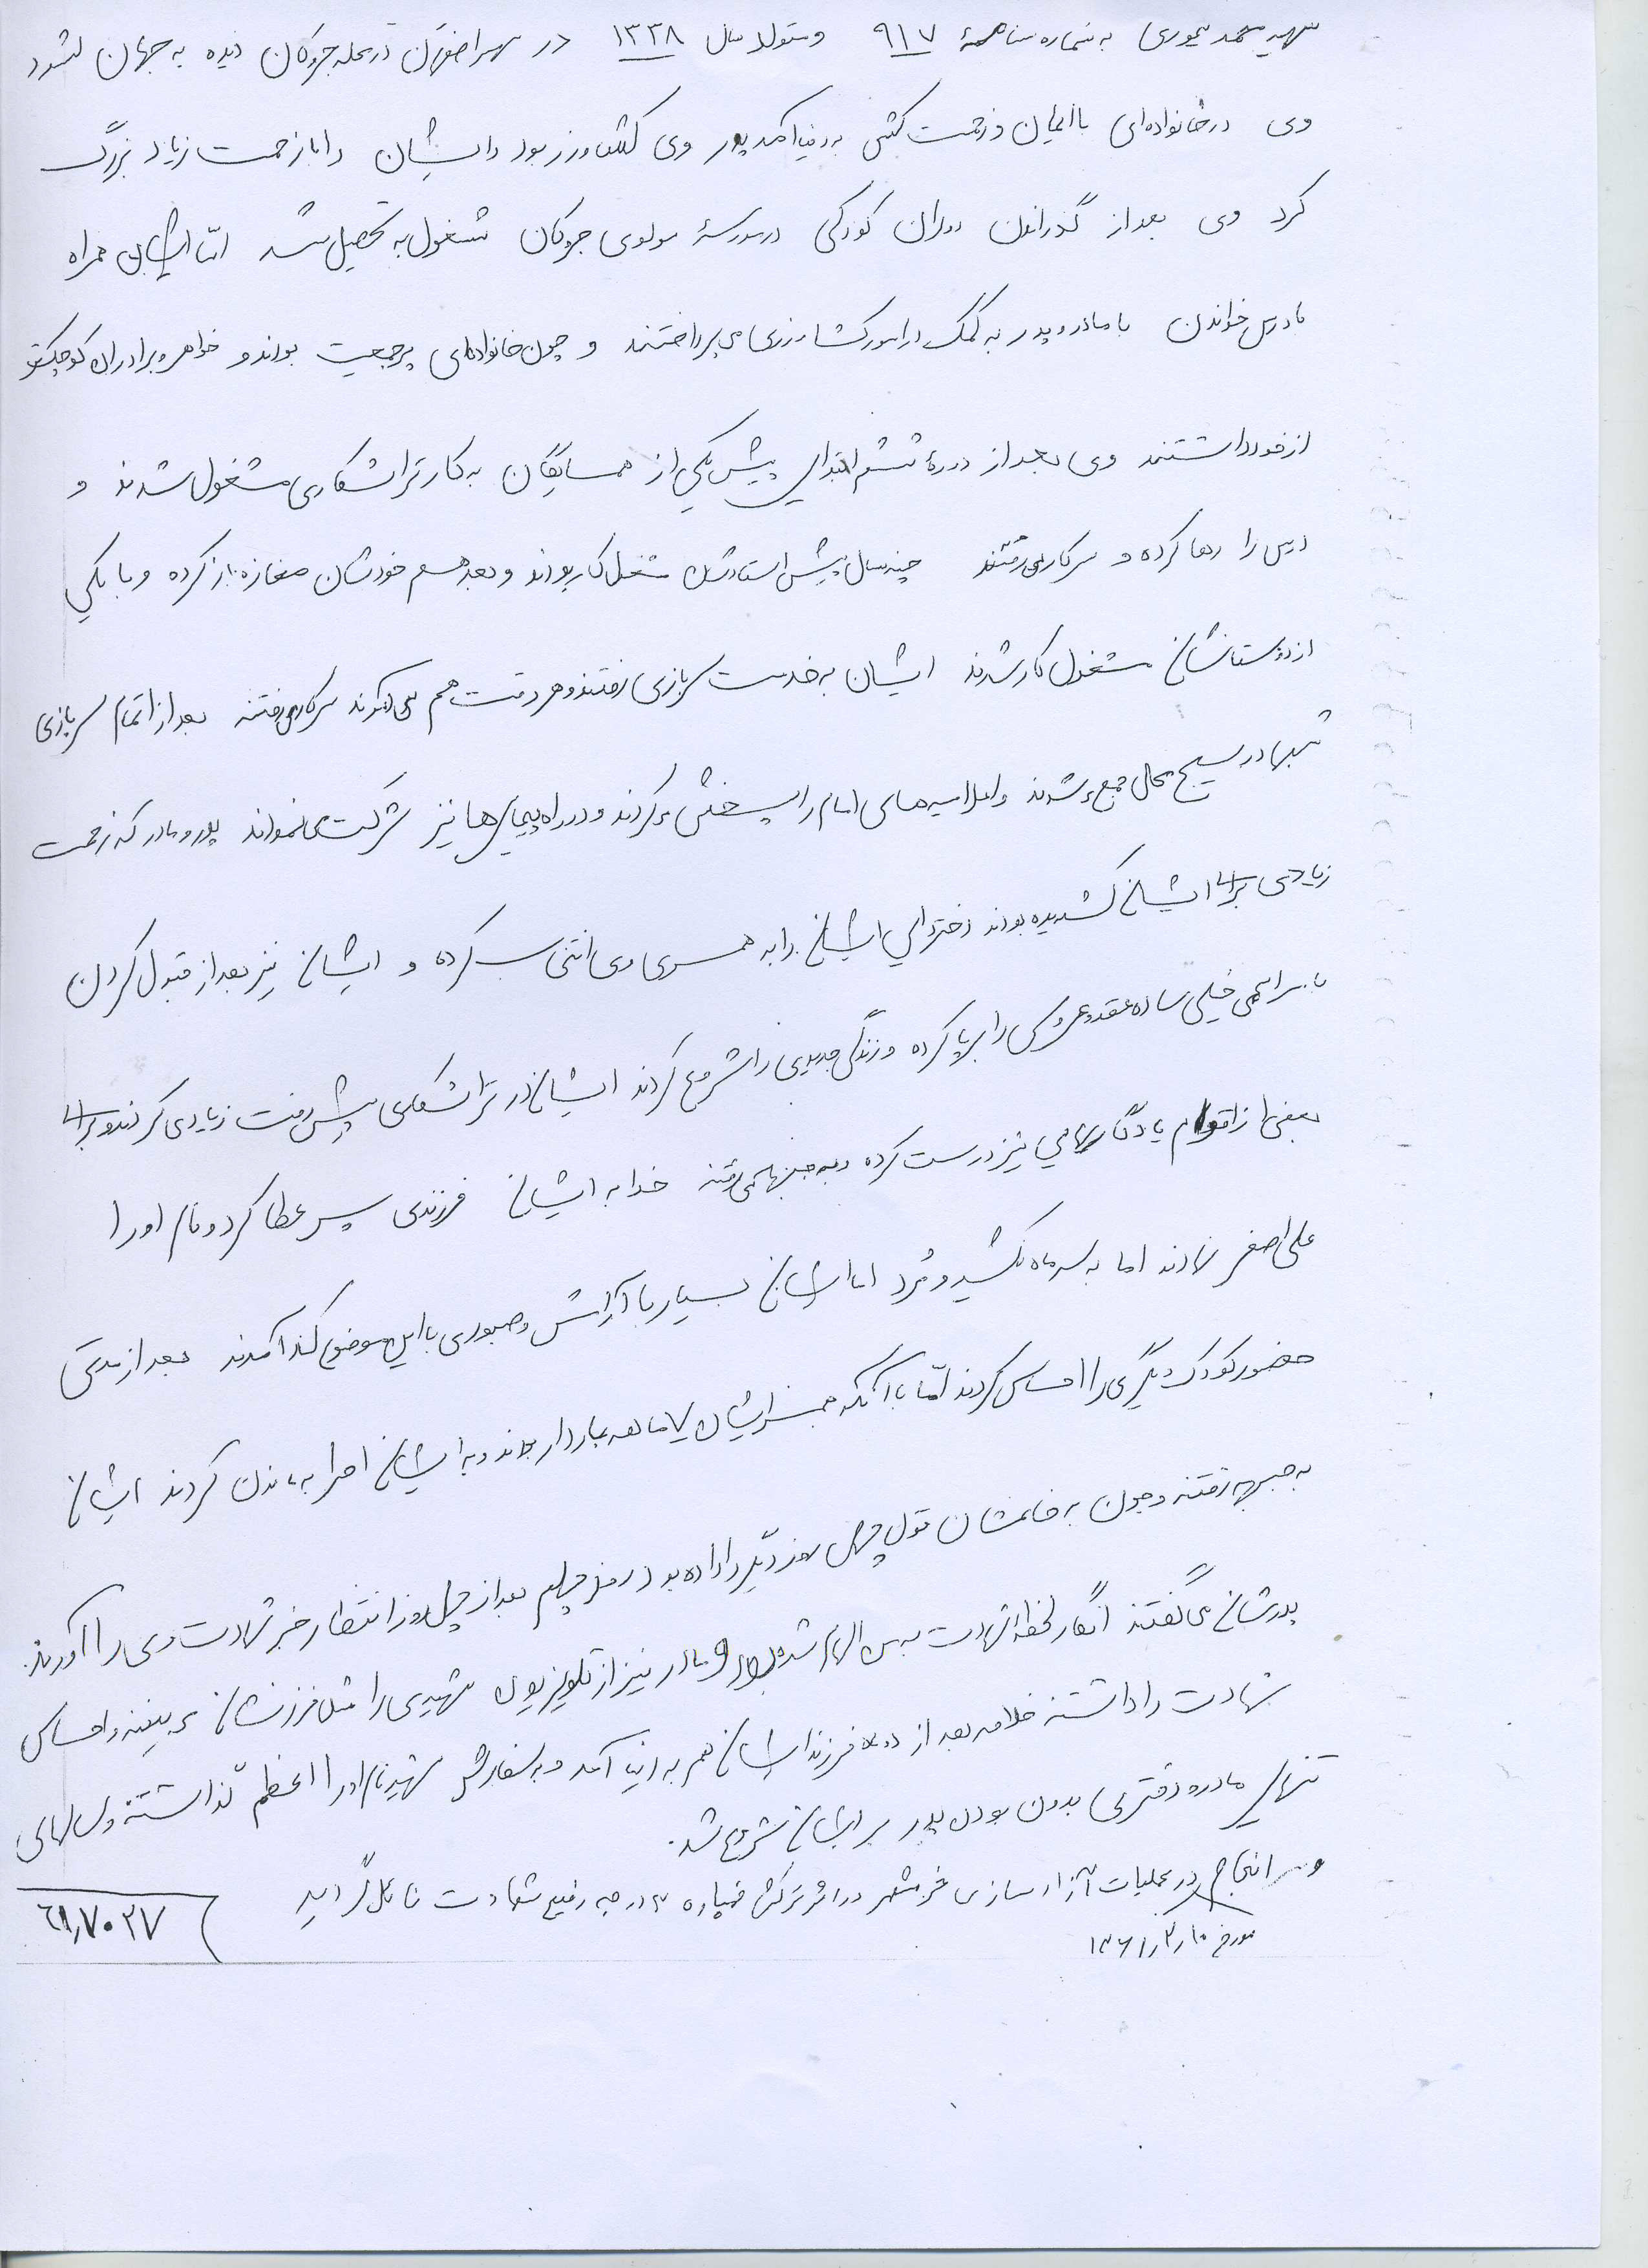 شهید محمد تیموری به شماره شناسنامهٔ ۹۱۷ و متولد سال ۱۳۳۸ در شهر اصفهان در محله جروکان دیده به جهان گشود
وی در خانواده‌ای باایمان و زحمت کش به دنیا آمد پدر وی کشاورز بود و ایشان را با زحمت زیاد بزرگ
کرد وی بعد از گذراندن دوران کودکی در مدرسهٔ مولوی جروکان مشغول به تحصیل شد امّا ایشان همراه
با درس خواندن با مادر و پدر به کمک در امور کشاورزی می پرداختند و چون خانواده‌ای پرجمعیت بودند و خواهر و برادران کوچکتر
از خود داشتند وی بعد از دورهٔ ششم ابتدایی پیش یکی از همسایگان به کار تراشکاری مشغول شدند و
درس را رها کرده و سرکار می رفتند چند سال پیش استادشان مشغول کار بودند و بعد هم خودشان مغازه باز کرده و با یکی
از دوستانشان مشغول کار شدند ایشان به خدمت سربازی رفتند و هر وقت هم می آمدند سرکار می رفتند بعد از اتمام سربازی
شبها در بسیج محل جمع می شدند و اعلامیه های امام را پخش می کردند و در راه پیمایی ها نیز شرکت می نمودند پدر و مادر که زحمت
زیادی برای ایشان کشیده بودند دختر دایی ایشان را به همسری وی انتخاب کرده و ایشان نیز بعد از قبول کردن
با مراسمی خیلی ساده عقد و عروسی را برپا کرده و زندگی جدیدی را شروع کردند ایشان در تراشکاری پیش رفت زیادی کردند و برای
بعضی از اقوام یادگارهایی نیز درست کرده و به جبهه می رفتند خدا به ایشان فرزندی پسر عطا کرد و نام او را
علی اصغر نهادند اما به سه ماه نکشید و مُرد اما ایشان بسیار با آرامش و صبوری با این موضوع کنار آمدند بعد از مدتی
حضور کودک دیگری را احساس کردند امّا با آنکه همسر ایشان ۷ ماهه باردار بودند و به ایشان اصرار به ماندن کردند ایشان
به جبهه رفتند و چون به خانمشان قول چهل روز دیگر را داده بود روز چهلم بعد از چهل روز انتظار خبر شهادت وی را آوردند.
پدرشان می گفتند انگار لحظه شهادت به من الهام شده بود و مادر نیز از تلویزیون شهیدی را مثل فرزندشان می بینند و احساس
شهادت را داشتند خلاصه بعد از ۲ ماه فرزند ایشان هم به دنیا آمد و به سفارش شهید نام او را اعظم گذاشتند و سالهای
تنهایی مادر و دختری بدون بودن پدر بر ایشان شروع شد.
و سرانجام در عملیات آزاد سازی خرمشهر در اثر ترکش خمپاره به درجه رفیع شهادت نائل گردید
مورخ ۱۳۶۱/۲/۱۰
۶۱٫۷۰۲۷